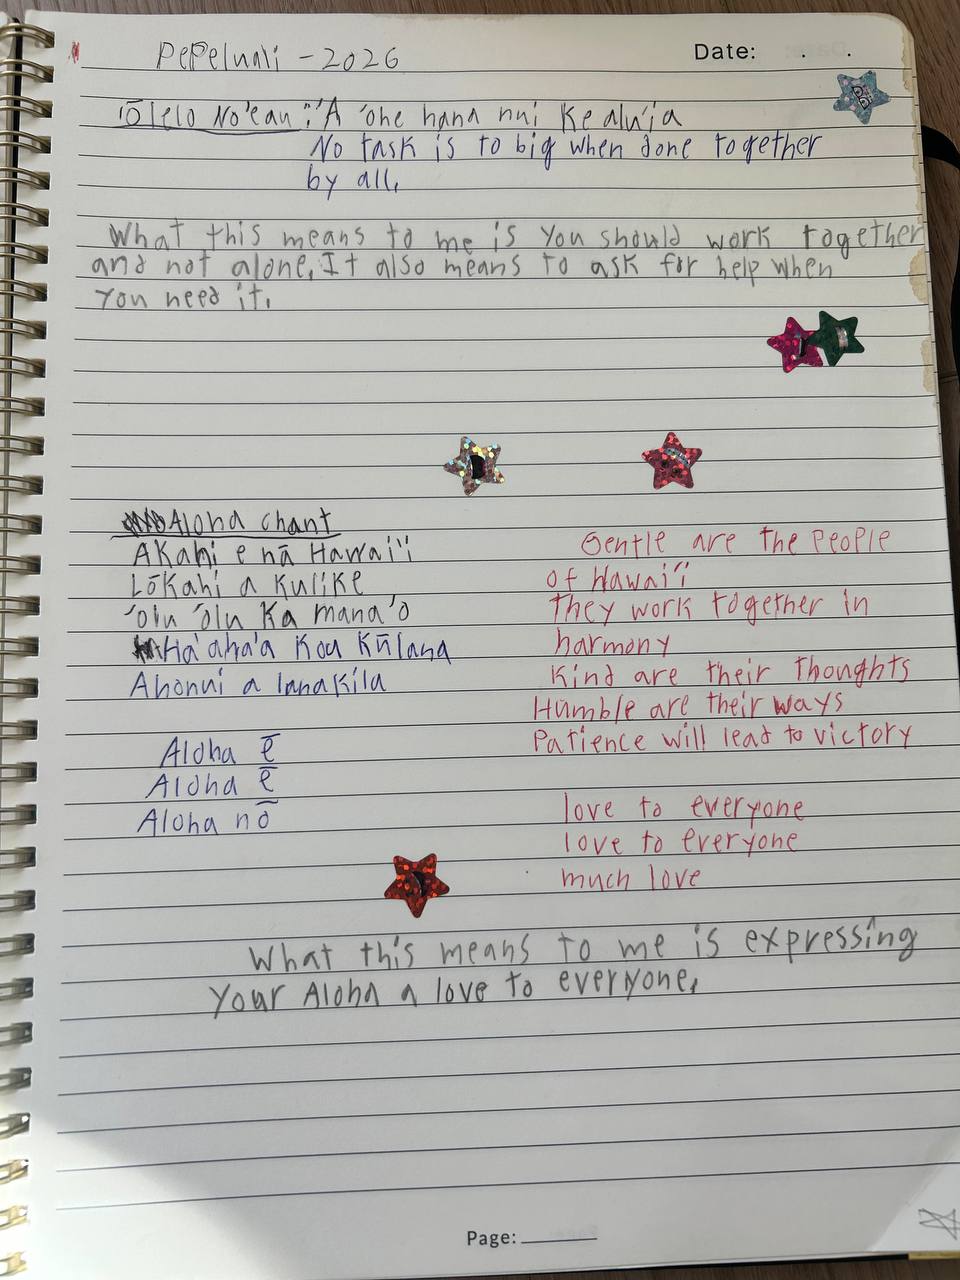 Pepeluali - 2026
Date: . .
'Ōlelo No'eau : 'A 'ohe hana nui Ke alu'ia
No task is to big when done together
by all.
What this means to me is you should work together
and not alone. It also means to ask for help when
you need it.
Aloha chant
AKahi e nā Hawai'i
Lōkahi a Kulike
'olu 'olu Ka mana'o
Ha'aha'a Kou Kūlana
Ahonui a lanakila
Aloha ē
Aloha ē
Aloha nō
Gentle are the People
of Hawai'i
They work together in
harmony
Kind are their thoughts
Humble are their ways
Patience will lead to victory
love to everyone
love to everyone
much love
What this means to me is expressing
your Aloha a love to everyone.
Page: